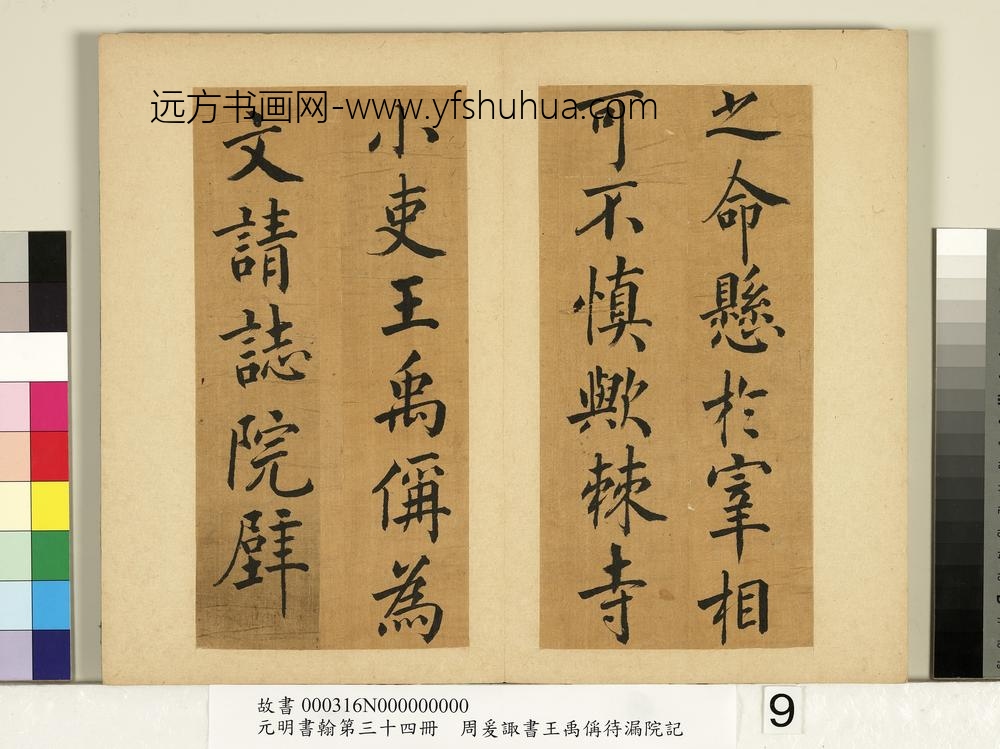 远方书画网-www.yfshuhua.com
之命懸於宰相
可不慎歟棘寺
小吏王禹偁為
文請誌院壁
故書 000316N000000000
元明書翰第三十四冊　周爰諏書王禹偁待漏院記
9